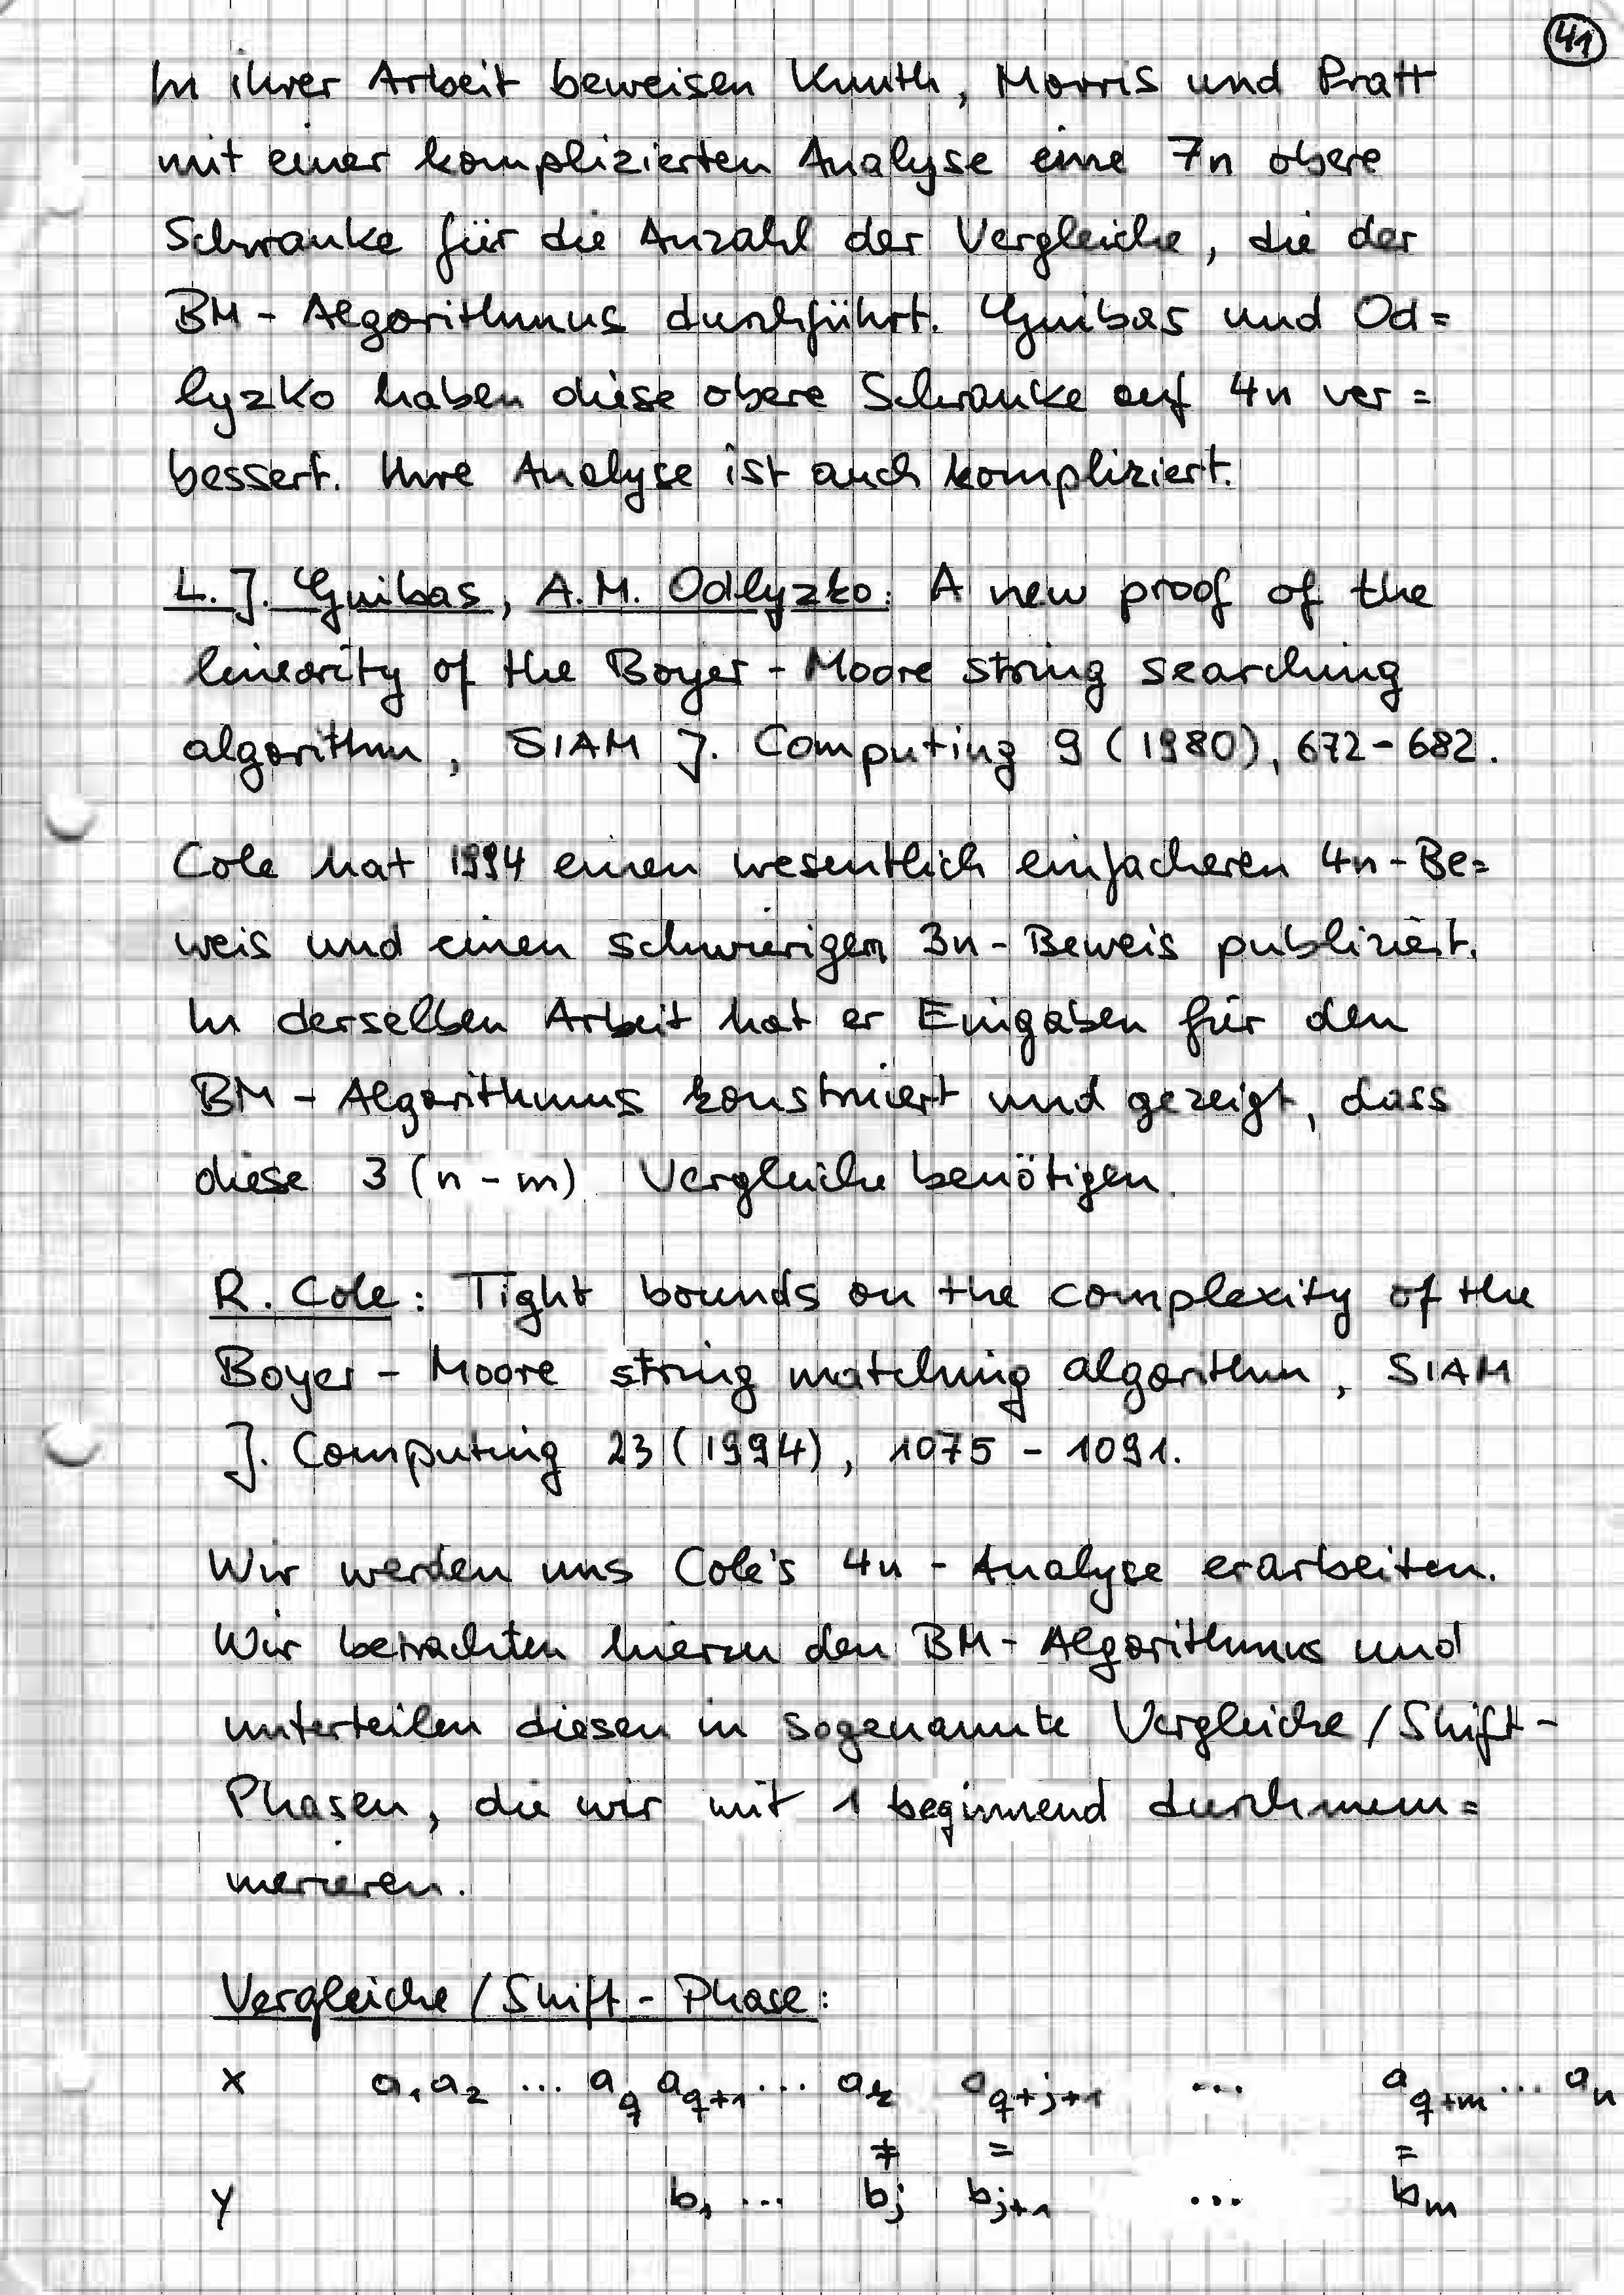 41
In ihrer Arbeit beweisen Knuth, Morris und Pratt
mit einer komplizierten Analyse eine 7n obere
Schranke für die Anzahl der Vergleiche, die der
BM - Algorithmus durchführt. Guibas und Od=
lyzko haben diese obere Schranke auf 4n ver=
bessert. Ihre Analyse ist auch kompliziert.
L. J. Guibas, A.M. Odlyzko: A new proof of the
linearity of the Boyer - Moore string searching
algorithm, SIAM J. Computing 9 (1980), 672-682.
Cole hat 1994 einen wesentlich einfacheren 4n-Be=
weis und einen schwierigen 3n-Beweis publiziert.
In derselben Arbeit hat er Eingaben für den
BM - Algorithmus konstruiert und gezeigt, dass
diese 3(n-m) Vergleiche benötigen.
R. Cole: Tight bounds on the complexity of the
Boyer - Moore string matching algorithm, SIAM
J. Computing 23 (1994), 1075 - 1091.
Wir werden uns Cole's 4n - Analyse erarbeiten.
Wir betrachten hierzu den BM - Algorithmus und
unterteilen diesen in sogenannte Vergleiche/Shift-
Phasen, die wir mit 1 beginnend durchnum=
merieren.
Vergleiche/Shift - Phase:
x a₁a₂ ... a_q a_{q+1} ... a_k a_{q+j+1} ... a_{q+m} ... a_n
≠ = =
y b₁ ... b_j b_{j+1} ... b_m